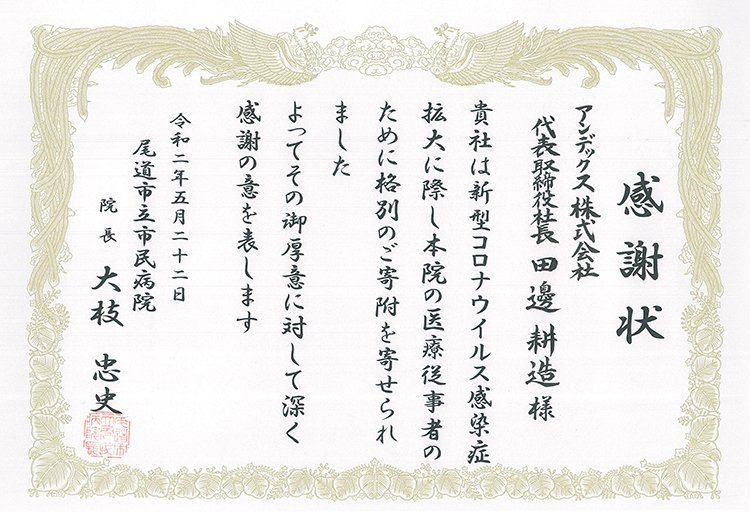 感謝状
アンデックス株式会社
代表取締役社長 田邊耕造様
貴社は新型コロナウイルス感染症
拡大に際し本院の医療従事者の
ために格別のご寄附を寄せられ
ました
よってその御厚意に対して深く
感謝の意を表します
令和二年五月二十二日
尾道市立市民病院
院長 大枝忠史